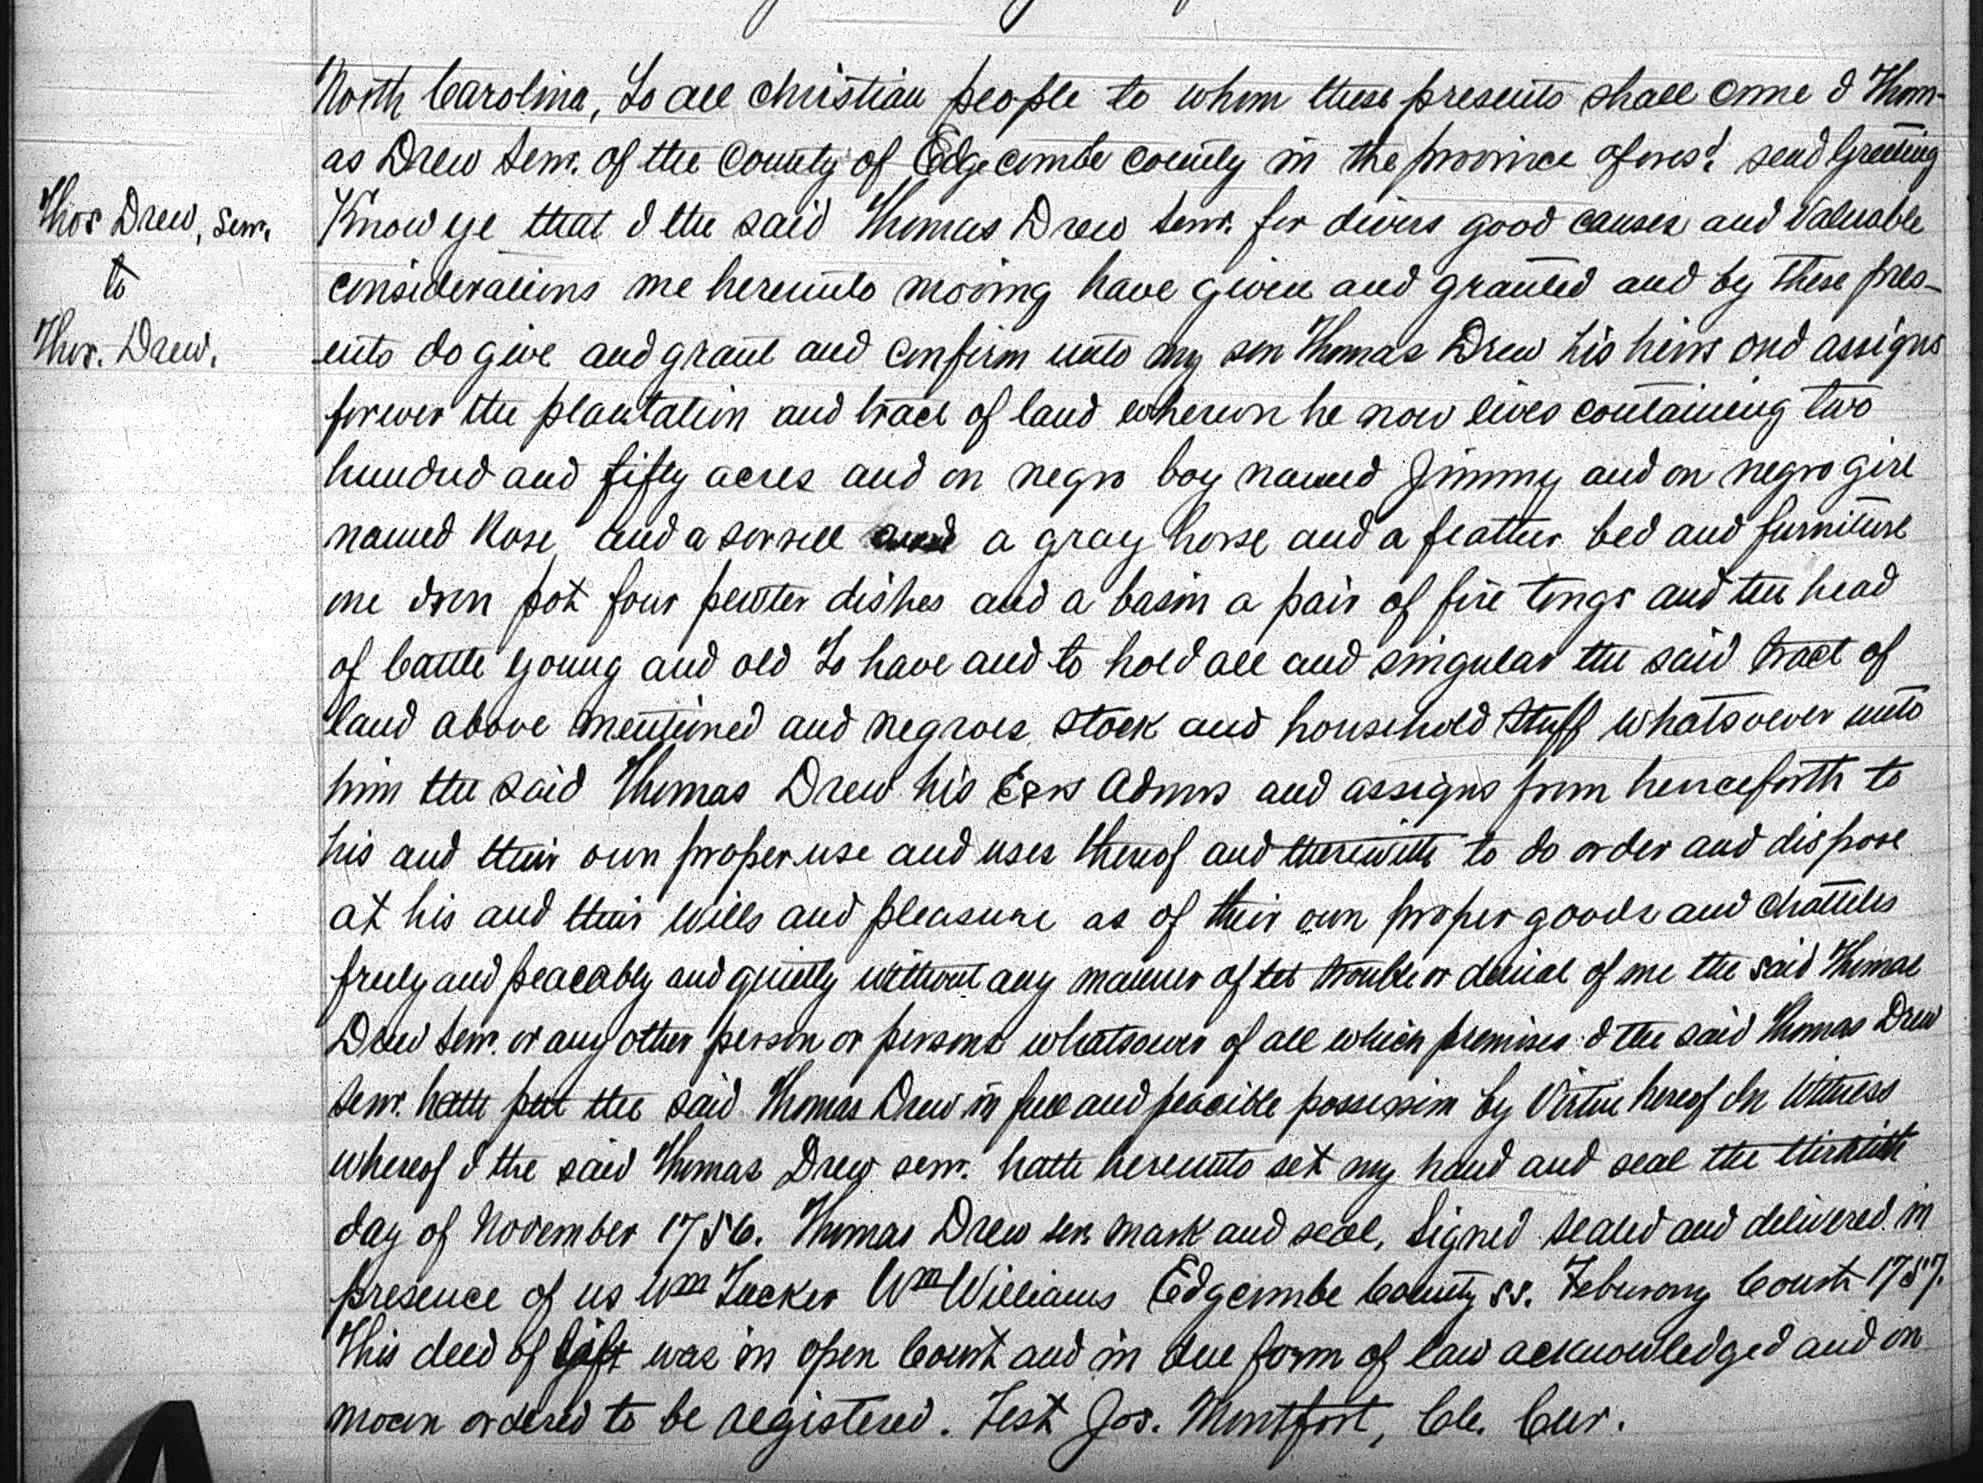 North Carolina, To all christian people to whom these presents shall come I Thom-
as Drew Senr. of the County of Edgecombe county in the province afores'd. send Greeting
Thos Drew, Senr.
to
Thos. Drew.
Know ye that I the said Thomas Drew Senr. for divers good causes and Valuable
considerations me hereunto moving have given and granted and by these pres-
ents do give and grant and confirm unto my son Thomas Drew his heirs and assigns
forever the plantation and tract of land whereon he now lives containing two
hundred and fifty acres and on negro boy named Jimmy and on negro girl
named Rose and a sorrell and a gray horse and a feather bed and furniture
one Iron pot four pewter dishes and a basin a pair of fire tongs and ten head
of Cattle young and old To have and to hold all and singular the said tract of
land above mentioned and negroes stock and household stuff whatsoever unto
him the said Thomas Drew his Exrs Admrs and assigns from henceforth to
his and their own proper use and uses thereof and therewith to do order and dispose
at his and their wills and pleasure as of their own proper goods and chattles
freely and peacably and quietly without any manner of let trouble or denial of me the said Thomas
Drew Senr. or any other person or persons whatsoever of all which premises I the said Thomas Drew
Senr. hath put the said Thomas Drew in full and peacible possession by Virtue hereof In Witness
whereof I the said Thomas Drew senr. hath hereunto set my hand and seal the
day of November 1756. Thomas Drew sen mark and seal, Signed sealed and delivered in
presence of us Wm Tucker Wm Williams Edgcombe County ss. Feburary Court 1757.
This deed of Gift was in open Court and in due form of law acknowledged and on
mocon ordered to be registered. Test Jos. Montfort, Cle. Cur.